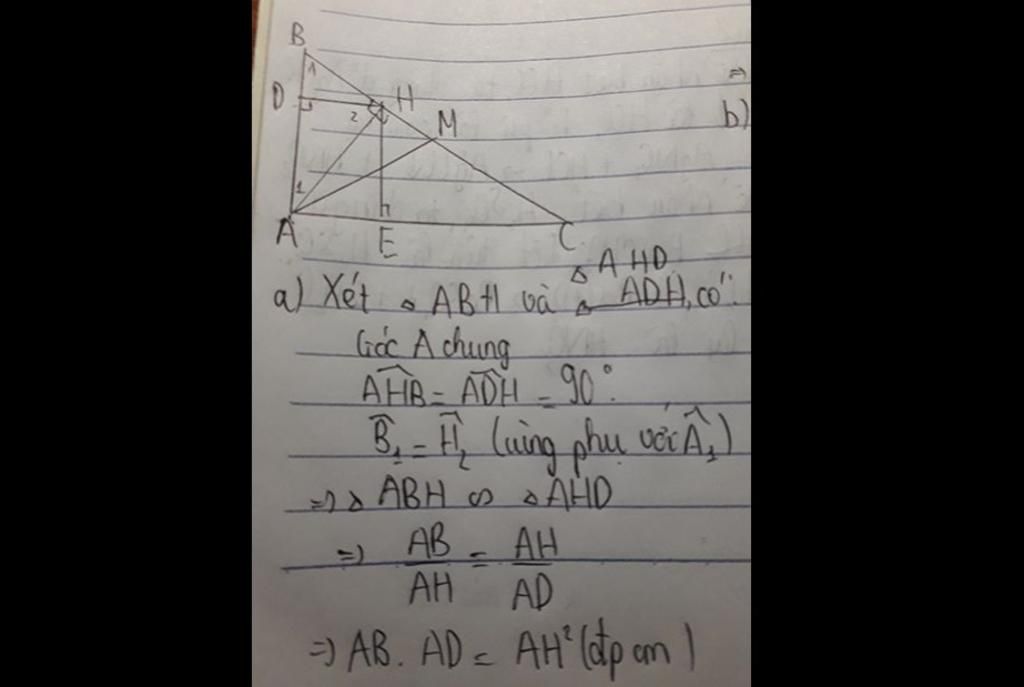 B
1
D
2
H
M
1
A
E
C
⇒
b)
△ AHD
a) Xét △ ABH và △ ADH, có:
Góc A chung
AHB = ADH = 90°
B₁ = H₂ (cùng phụ với A₁)
⇒ △ ABH ∽ △ AHD
⇒ AB/AH = AH/AD
⇒ AB. AD = AH² (đpcm)